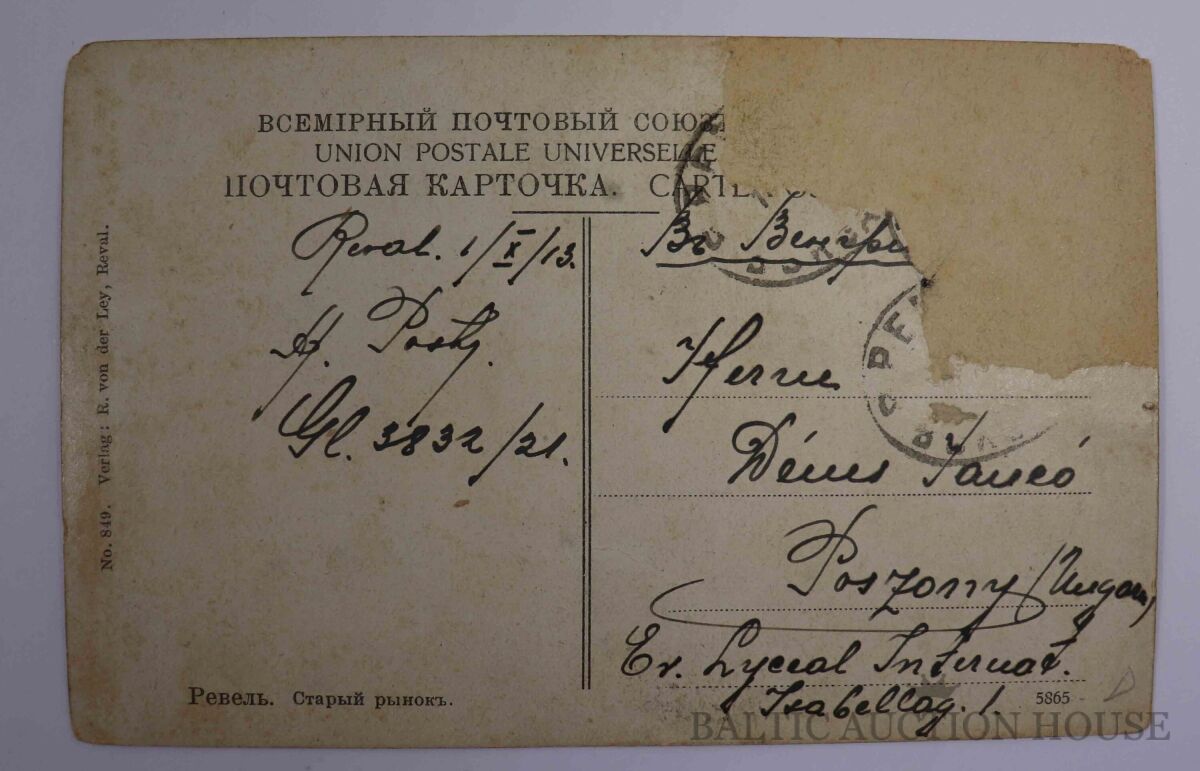 ВСЕМІРНЫЙ ПОЧТОВЫЙ СОЮЗ
UNION POSTALE UNIVERSELLE
ПОЧТОВАЯ КАРТОЧКА. CARTE
Reval. 1/X/13.
Въ Венгрі
A. Posty.
Gl. 3832/21.
Herrn
Dénes Jancó
Poszony (Ungarn)
Ev. Lyceal Internat.
Isabellag. 1.
No. 849. Verlag: R. von der Ley, Reval.
Ревель. Старый рынокъ.
5865
D
BALTIC AUCTION HOUSE